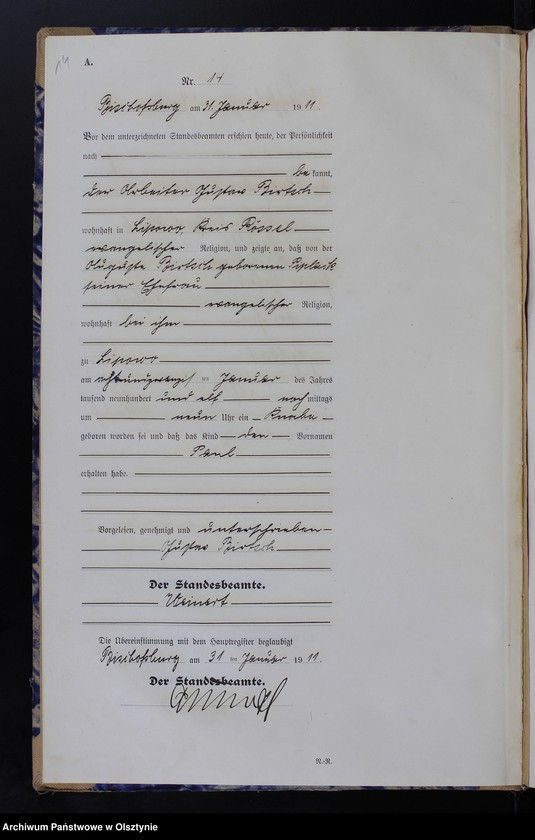 14
A.
Nr. 14
Bischofsburg am 31. Januar 1911.
Vor dem unterzeichneten Standesbeamten erschien heute, der Persönlichkeit
nach
be kannt,
der Arbeiter Gustav Birtsch
wohnhaft in Lipowo Kreis Rössel
evangelischer Religion, und zeigte an, daß von der
Auguste Birtsch geborenen
seiner Ehefrau
evangelischer Religion,
wohnhaft bei ihm
zu Lipowo
am achtundzwanzigsten Januar des Jahres
tausend neunhundert und elf nach mittags
um neun Uhr ein Knabe
geboren worden sei und daß das Kind den Vornamen
Paul
erhalten habe.
Vorgelesen, genehmigt und unterschrieben
Gustav Birtsch
Der Standesbeamte.
Weinert
Die Übereinstimmung mit dem Hauptregister beglaubigt
Bischofsburg am 31 ten Januar 1911.
Der Standesbeamte.
N.-R.
Archiwum Państwowe w Olsztynie